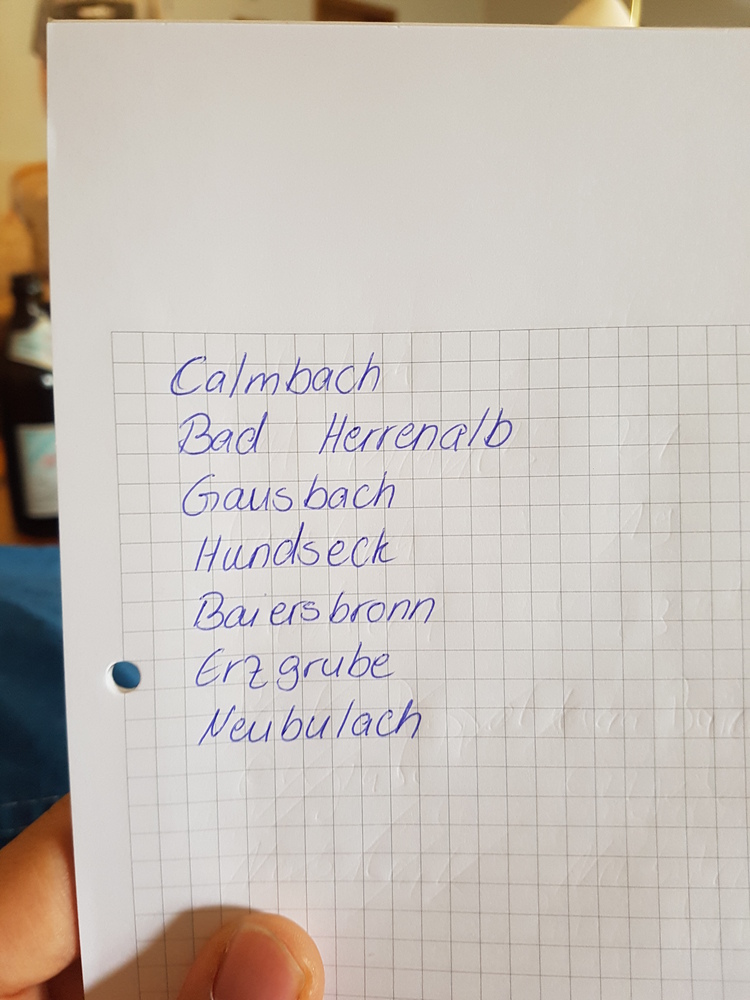 Calmbach
Bad Herrenalb
Gausbach
Hundseck
Baiersbronn
Erzgrube
Neubulach